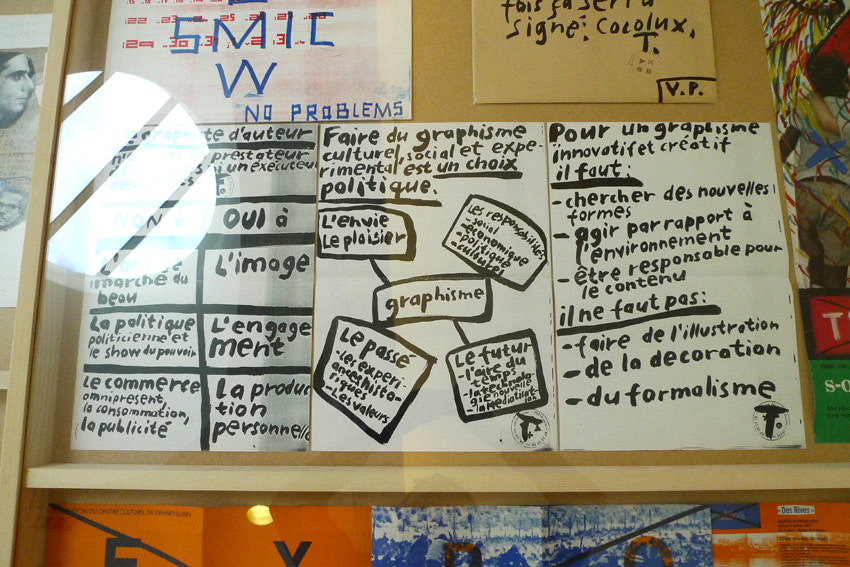 SMIC
W
NO PROBLEMS
Signé: Cocolux.
T.
V.P.
graphiste d'auteur
prestateur
ni un exécuteur
NON à OUI à
L'image
marché du
beau
La politique
politicienne et
le show du pouvoir
L'engage
ment
Le commerce
omniprésent,
la consommation,
la publicité
La produc
tion
personnelle
Faire du graphisme
culturel, social et expé-
rimental est un choix
politique.
L'envie
Le plaisier
Les responsabilités
-social
-économique
-politique
-culturel
graphisme
Le passé
-les experi
ances histo-
riques
-Les valeurs
Le futur
-l'aire du
temps
-la technolo
gie nouvelle
-la mediatisat
ion
T.
Pour un graphisme
innovatif et créatif
il faut:
-chercher des nouvelles
formes
-agir par rapport à
l'environnement
-être responsable pour
le contenu
il ne faut pas:
-faire de l'illustration
-de la decoration
-du formalisme
T.
«Des Rives»
E X P O